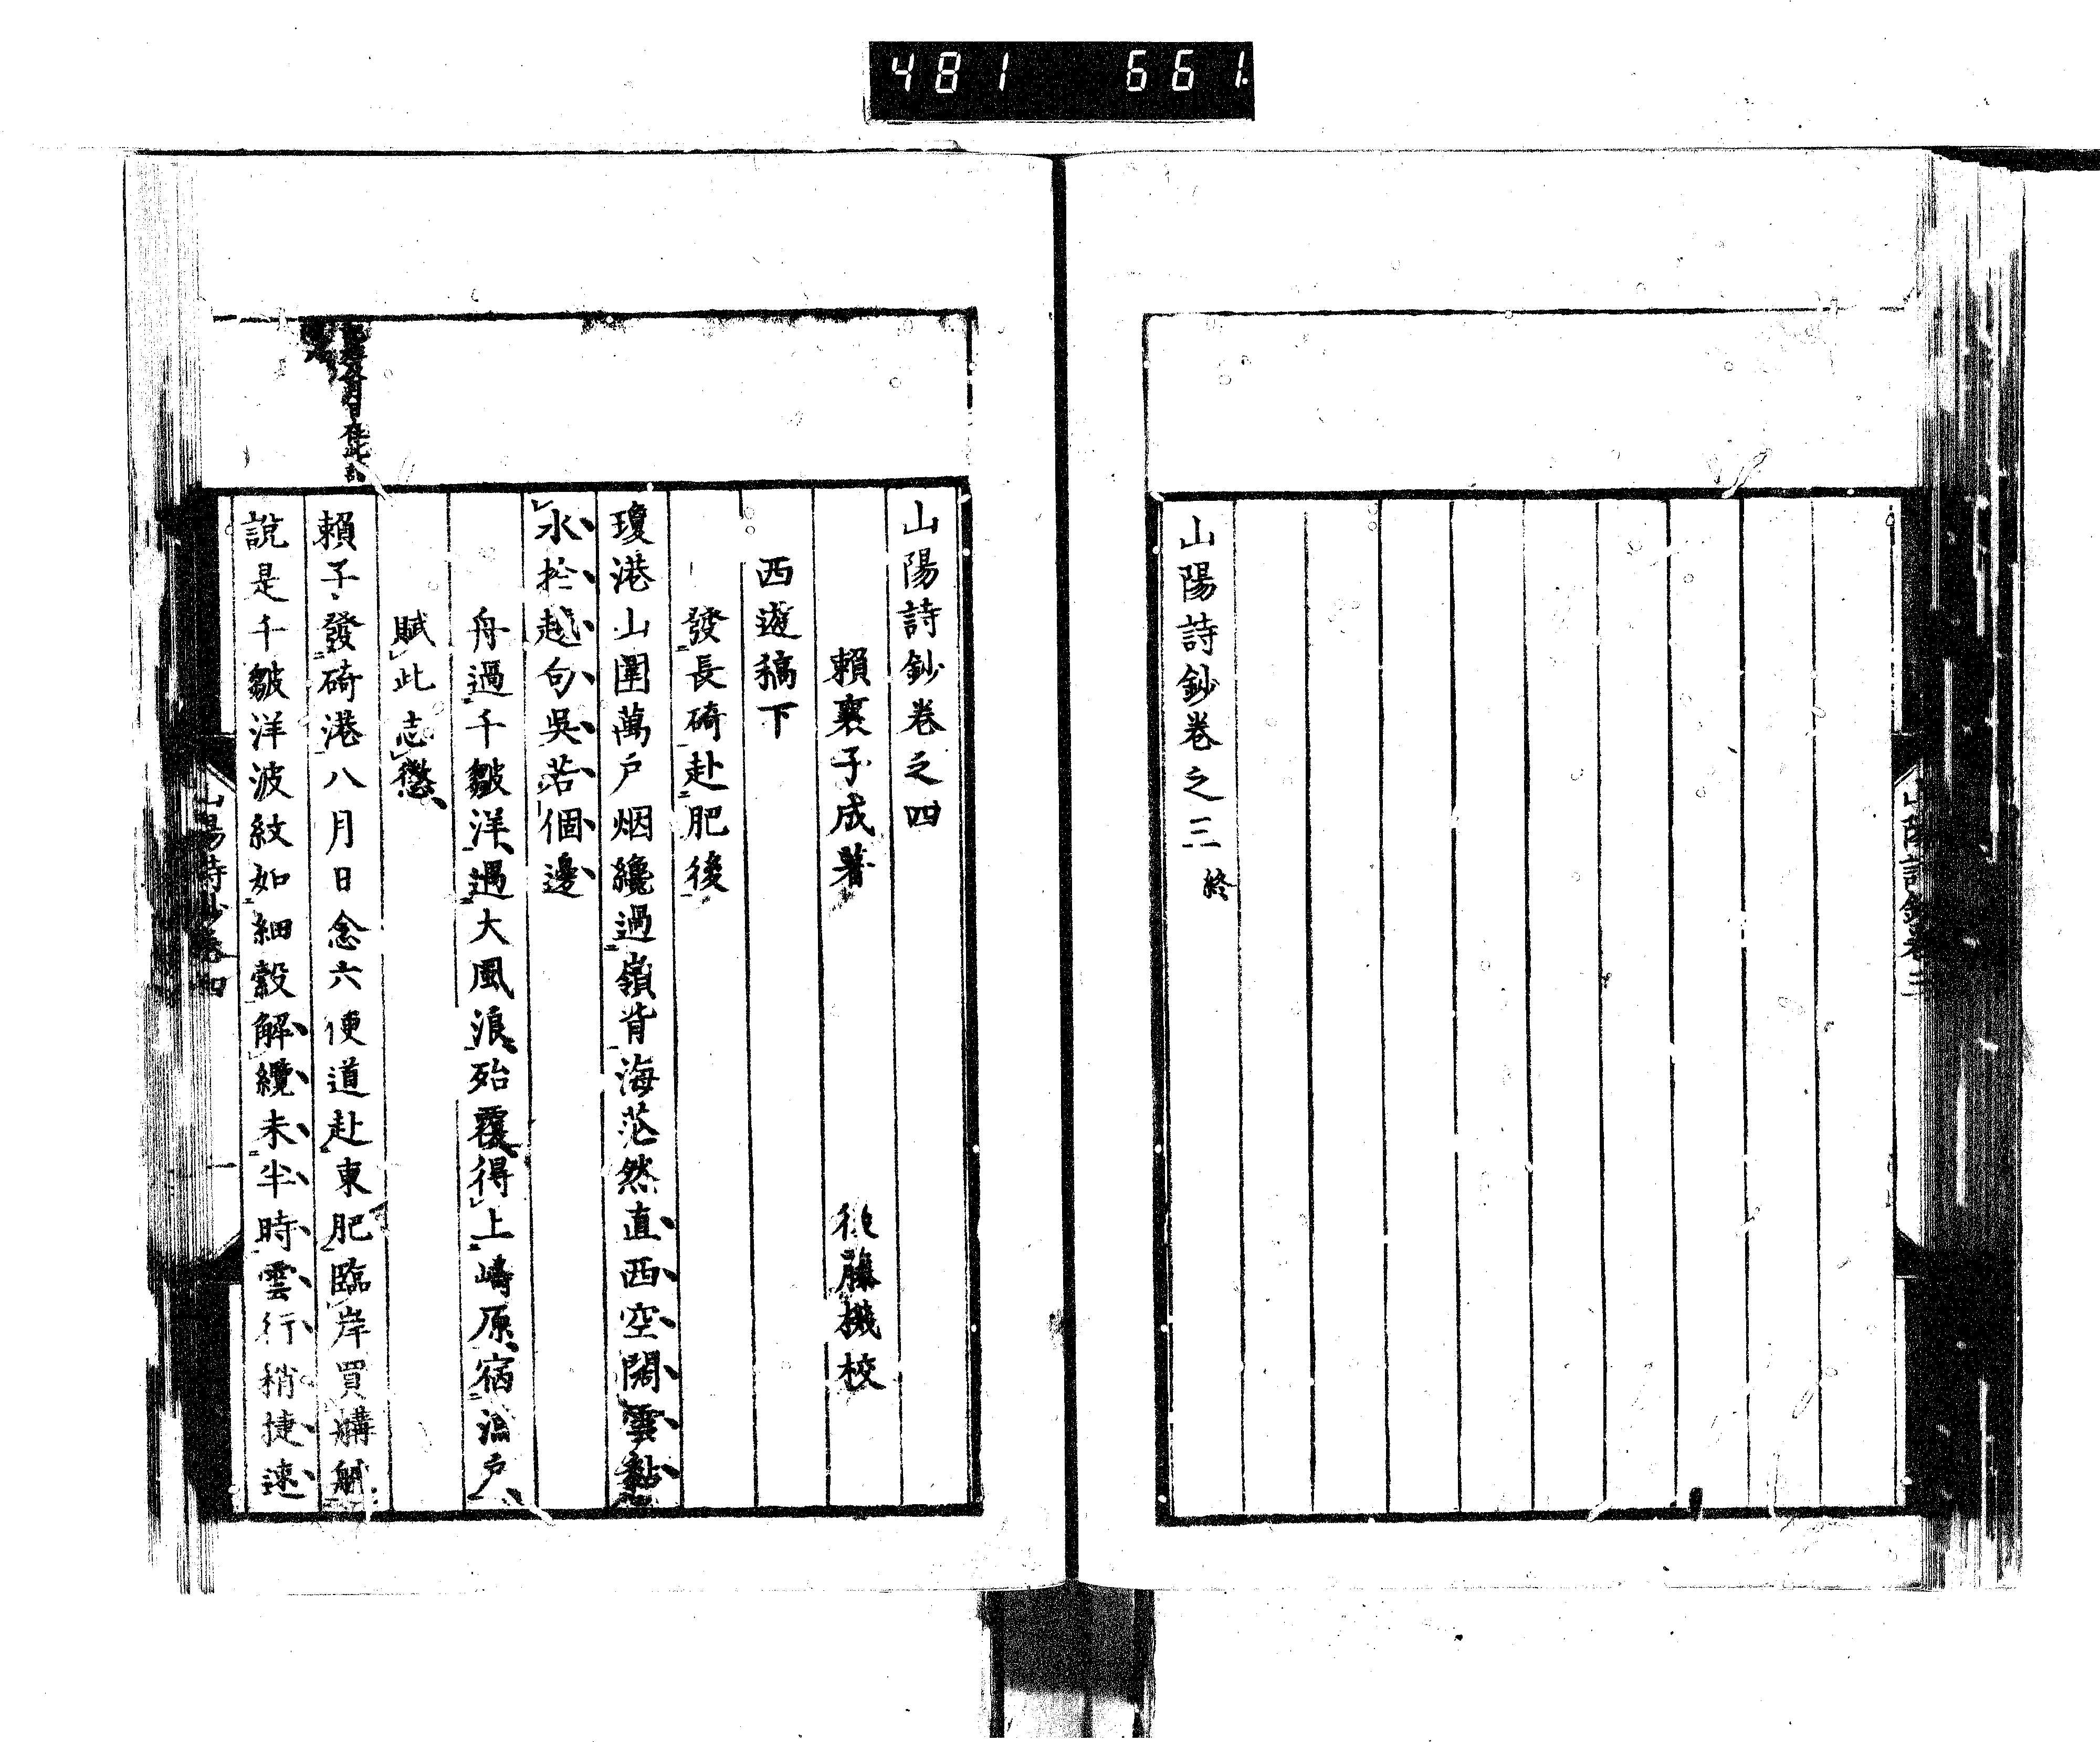 481 661
山陽詩鈔卷之三 終
山陽詩鈔卷三
山陽詩鈔卷之四
賴襄子成著 後藤機校
西遊稿下
發長碕赴肥後
瓊港山圍萬戶烟纔過嶺背海茫然直西空闊雲黏
水於越句吳若個邊
舟過千皺洋遇大風浪殆覆得上嶹原宿漁戶
賦此志懲
賴子發碕港八月日念六便道赴東肥臨岸買䑦𦨖
說是千皺洋波紋如細縠解纜未半時雲行稍捷速
在此記
山陽詩鈔卷四